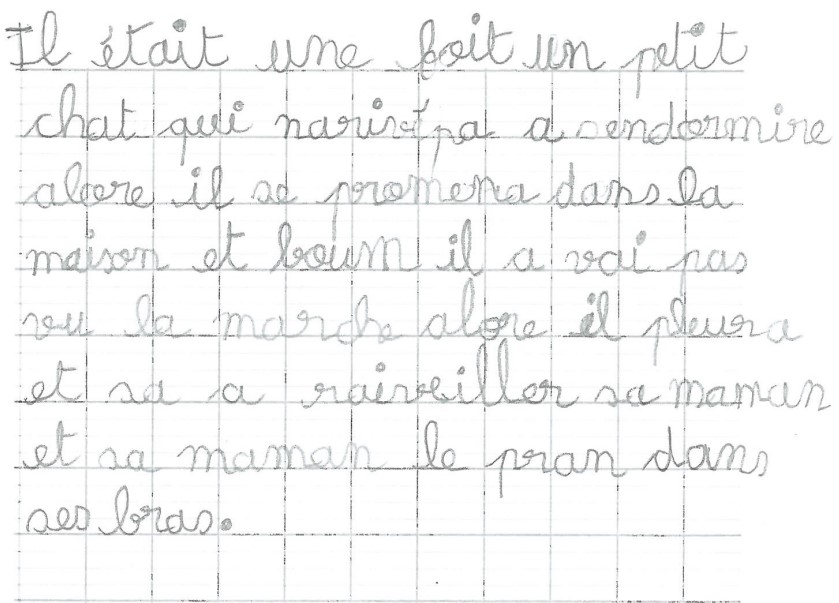 Il était une foit un petit
chat qui narivt pa a sendormire
alore il se promena dans la
maison et boum il a vai pas
vu la marche alore il pleura
et sa a raiveiller sa maman
et sa maman le pran dans
ses bras.